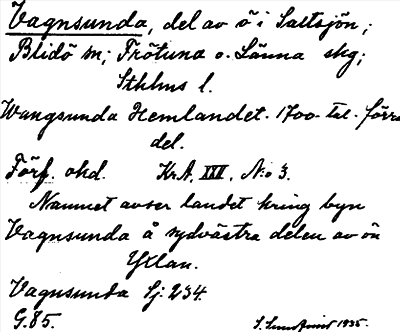 Vagnsunda, del av ö i Saltsjön;
Blidö sn; Frötuna o. Länna skg;
Sthlms l.
Wangsunda Hemlandet. 1700-tal. förra
del.
Förf. okd. KrA. III. N:o 3.
Namnet avser landet kring byn
Vagnsunda å sydvästra delen av ön
Yxlan.
Vagnsunda Sj: 234.
G.85. 1935.